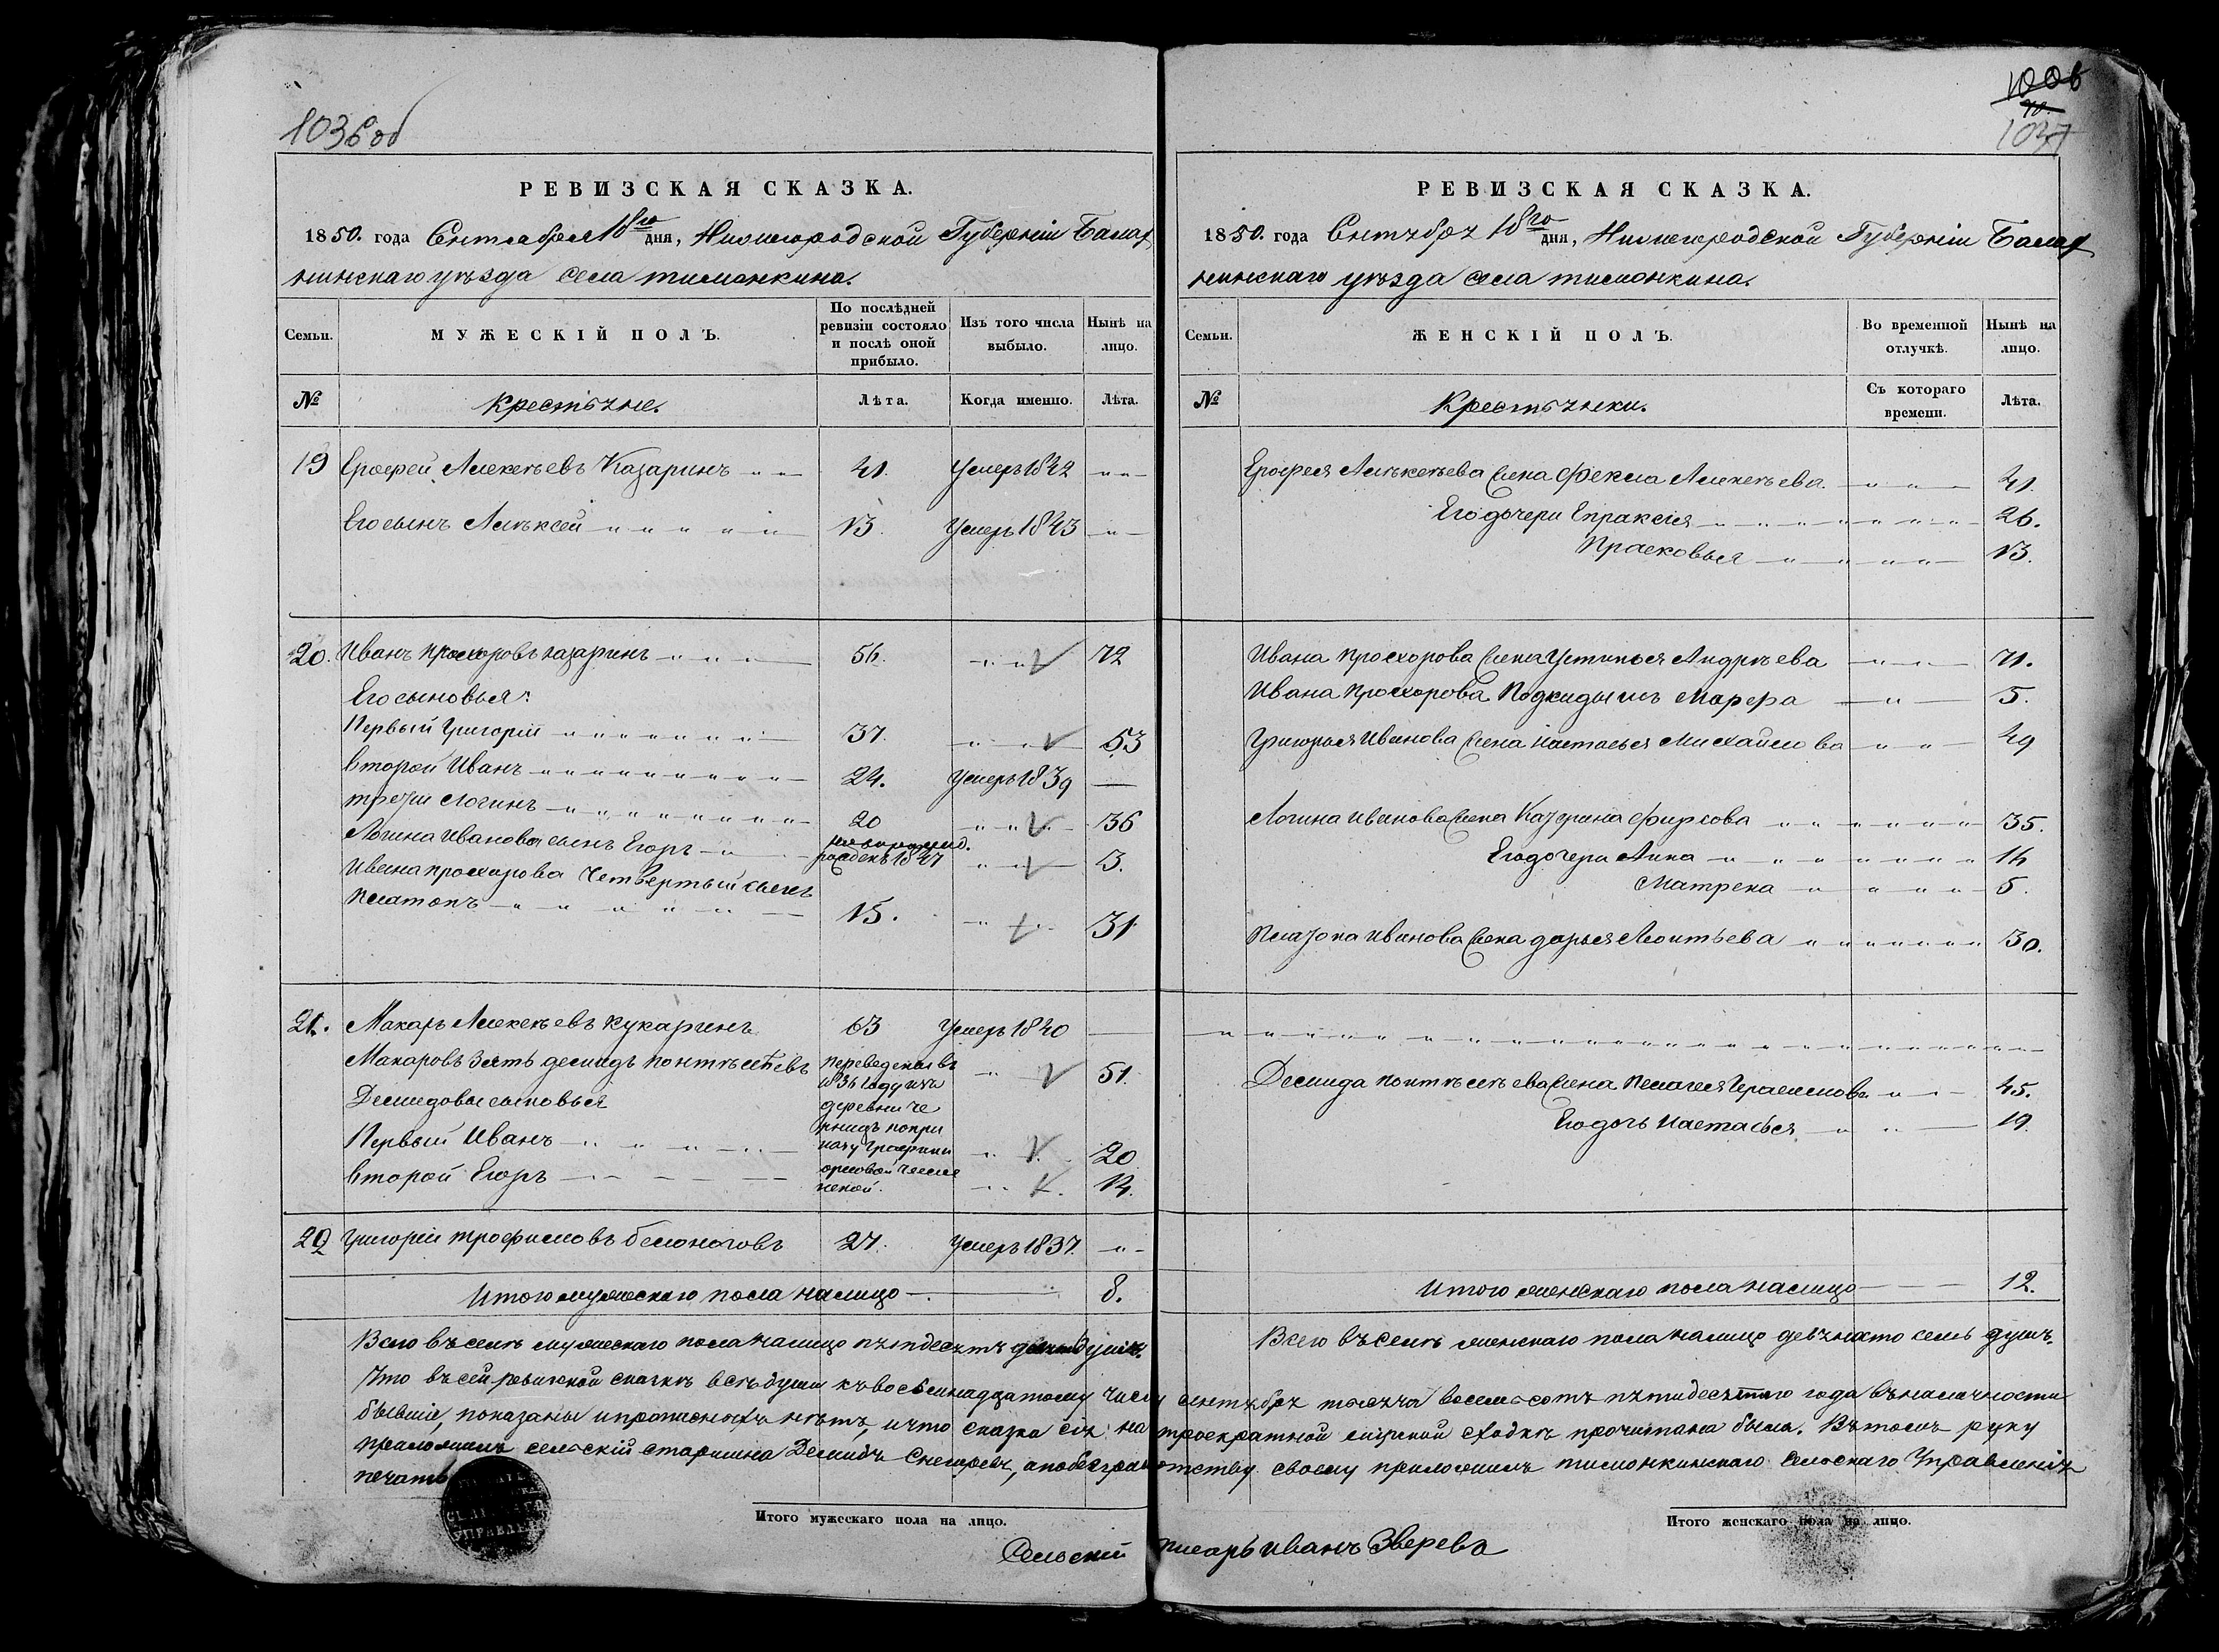 1036 об
РЕВИЗСКАЯ СКАЗКА.
1850. года Сентября 18го дня, Нижегородской Губернiи Балах
нинскаго уѣзда села тимонкина.
Семьи.
МУЖЕСКІЙ ПОЛЪ.
По послѣдней ревизіи состояло и послѣ оной прибыло.
Изъ того числа выбыло.
Нынѣ на лицо.
№
Крестьяне.
Лѣта.
Когда именно.
Лѣта.
19 Ерофей Алекеѣевъ Казаринъ 41. Умеръ 1842
Его сынъ Алѣксей 13. Умеръ 1843
20. Иванъ прохоровъ казаринъ 56. 72
Его сыновья:
Первый Григорій 37. 53
второй Иванъ 24. умеръ 1839
третій Логинъ 20 36
Логина Иванова сынъ Егоръ рожденъ 1847 3.
Ивана прохорова Четвертый сынъ
платонъ 15. 31
21. Макаръ Алекеѣевъ кукаринъ 63 Умеръ 1840
Макаровъ Зять демидъ понтѣлѣевъ переведенъ въ 51.
1836 году изъ
Демидовы сыновья деревни Че
рнидъ по при
Первый Иванъ казу Графини 20
орловой Чесме
второй Егоръ нской. 14.
22 Григорій трофимовъ белоноговъ 27. умеръ 1837.
Итого мужескаго пола налицо 8.
Всего въ семъ мужескаго пола налицо пятдесятъ душъ.
РЕВИЗСКАЯ СКАЗКА.
1006
1037
1850. года Сентября 18го дня, Нижегородской Губерніи Балах
нинскаго уѣзда села тимонкина.
Семьи.
ЖЕНСКІЙ ПОЛЪ.
Во временной отлучкѣ.
Нынѣ на лицо.
№
Крестьянки.
Съ котораго времени.
Лѣта.
Ерофея Алѣкеѣева жена Фекла Алекеѣева 41.
Его дочери Епраксія 26.
Прасковья 13.
Ивана прохорова жена Устинья Андрѣева 71.
Ивана прохорова Подкидышъ Марфа 5.
Григорья Иванова жена настасья Михайлова 49
Логина Иванова жена Катерина Фирсова 35.
Его дочери Анна 16
Матрена 5.
Платона Иванова жена дарья Леонтьева 30.
Демида понтѣлѣева жена Пелагея Герасимова 45.
Его дочь настасья 19.
Итого женскаго пола налицо 12.
Всего въ семъ женскаго пола налицо девяносто семь душъ.
Что въ сей ревизской сказкѣ всѣ души къ восьмнадцатому числу сентября тысяча восемь сотъ пятидесятаго года въ наличности
бывшіе, показаны и прописныхъ нѣтъ, и что сказка сія на троекратной мирской сходкѣ прочитана была. Въ томъ руку
приложилъ сельскій старшина Демидъ Снегиревъ, а по безграмотству своему приложилъ тимонкинскаго Сельскаго Управленія
печать
Итого мужескаго пола на лицо.
Итого женскаго пола на лицо.
Сельскій писарь иванъ Зверевъ